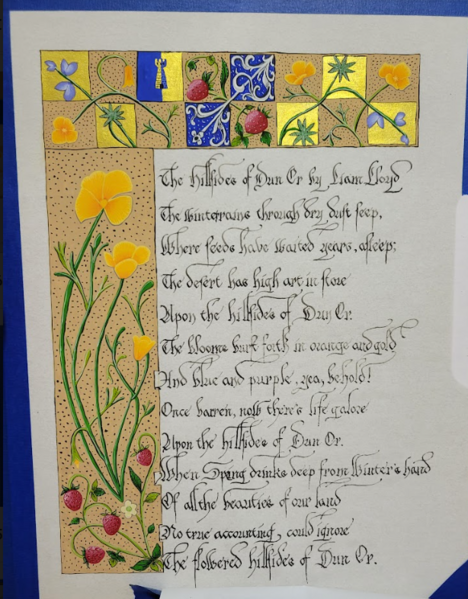 The hillsides of Dun Or by Liam Lloyd
The winter rains through dry dust seep,
Where seeds have waited years, asleep;
The desert has high art in store
Upon the hillsides of Dun Or.
The blooms burst forth in orange and gold
And blue and purple, yea, behold!
Once barren, now there's life galore
Upon the hillsides of Dun Or.
When Spring drinks deep from Winter's hand
Of all the beauties of our land
No true accounting, could ignore
The flowered hillsides of Dun Or.